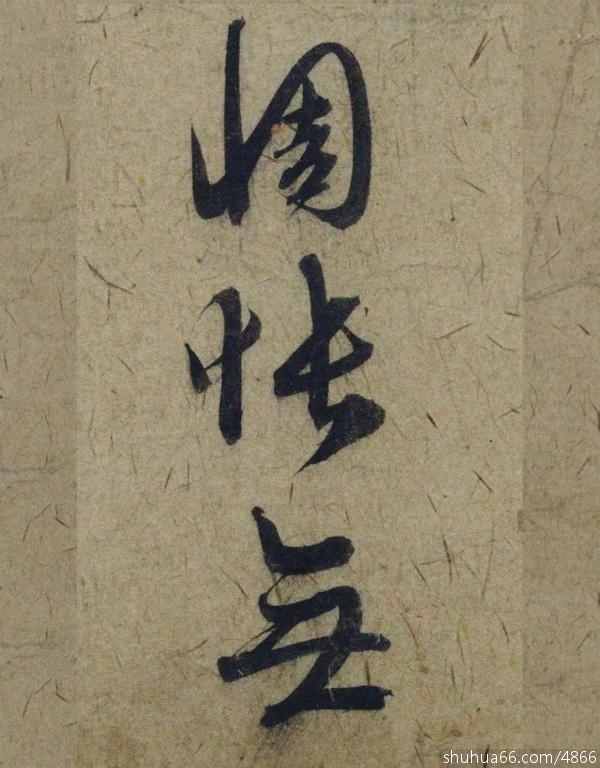 惆悵無
shuhua66.com/4866